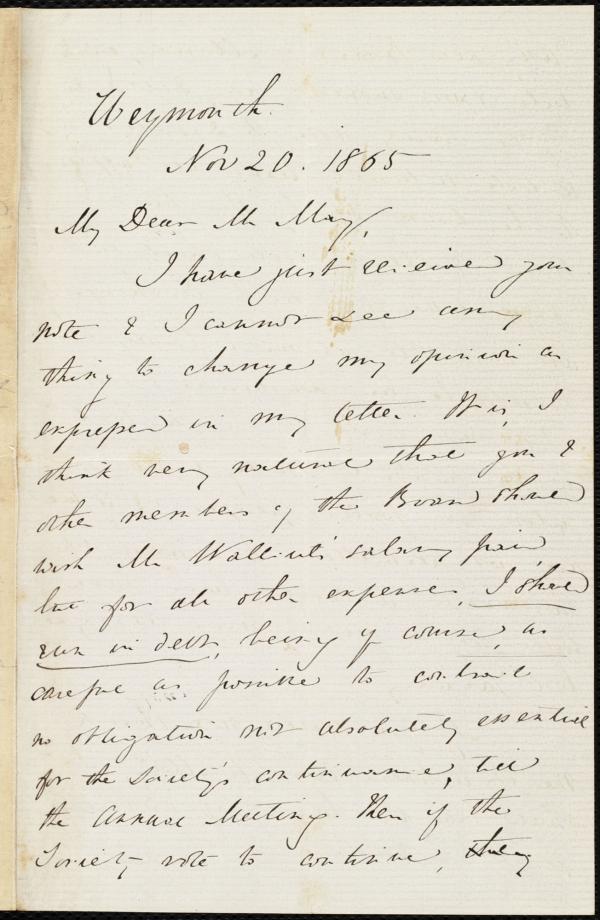 Weymouth.
Nov 20. 1865
My Dear Mr May,
I have just received your
note & I cannot see any
thing to change my opinion as
expressed in my letter. It is, I
think very natural that you &
other members of the Board should
wish Mr Wallcut's salary paid,
but for all other expenses, I should
run in debt, being of course, as
careful as possible to contract
no obligation not absolutely essential
for the Society's continuance, till
the Annual Meeting. Then if the
Society vote to continue, they